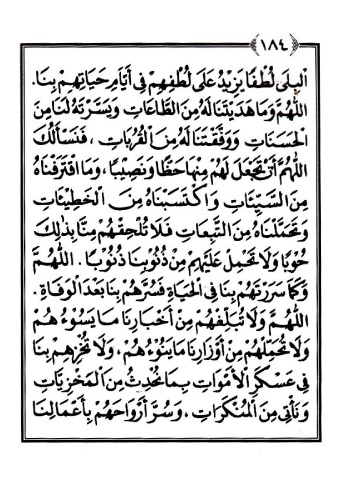 ﴿١٨٤﴾
الْبِلَى لُطْفًا يَزِيدُ عَلَى لُطْفِهِمْ فِي أَيَّامِ حَيَاتِهِمْ بِنَا.
اللّٰهُمَّ وَمَا هَدَيْتَنَا لَهُ مِنَ الطَّاعَاتِ وَيَسَّرْتَهُ لَنَا مِنَ
الْحَسَنَاتِ وَوَفَّقْتَنَا لَهُ مِنَ الْقُرُبَاتِ، فَنَسْأَلُكَ
اللّٰهُمَّ أَنْ تَجْعَلَ لَهُمْ مِنْهَا حَظًّا وَنَصِيبًا، وَمَا اقْتَرَفْنَاهُ
مِنَ السَّيِّئَاتِ وَاكْتَسَبْنَاهُ مِنَ الْخَطِيئَاتِ
وَتَحَمَّلْنَاهُ مِنَ التَّبِعَاتِ فَلَا تُلْحِقْهُمْ مِنَّا بِذٰلِكَ
حُوبًا وَلَا تَحْمِلْ عَلَيْهِمْ مِنْ ذُنُوبِنَا ذُنُوبًا. اللّٰهُمَّ
وَكَمَا سَرَرْتَهُمْ بِنَا فِي الْحَيَاةِ فَسُرَّهُمْ بِنَا بَعْدَ الْوَفَاةِ.
اللّٰهُمَّ وَلَا تُبَلِّغْهُمْ مِنْ أَخْبَارِنَا مَا يَسُوْءُهُمْ
وَلَا تُحَمِّلْهُمْ مِنْ أَوْزَارِنَا مَا يَنُوْءُهُمْ، وَلَا تُخْزِهِمْ بِنَا
فِي عَسْكَرِ الْأَمْوَاتِ بِمَا نُحْدِثُ مِنَ الْمُخْزِيَاتِ
وَنَأْتِي مِنَ الْمُنْكَرَاتِ، وَسُرَّ أَرْوَاحَهُمْ بِأَعْمَالِنَا